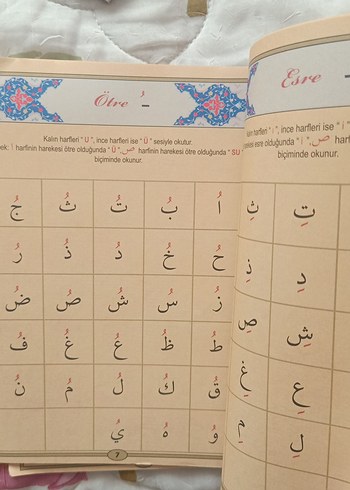 Ötre ـُ
Kalın harfleri " U ", ince harfleri ise " Ü " sesiyle okutur.
ek: أ harfinin harekesi ötre olduğunda " Ü ", ص harfinin harekesi ötre olduğunda " SU "
biçiminde okunur.
اُ بُ تُ ثُ جُ
حُ خُ دُ ذُ رُ
زُ سُ شُ صُ ضُ
طُ ظُ عُ غُ فُ
قُ كُ لُ مُ نُ
وُ هُ يُ
7
Esre
Kalın harfleri " ı ", ince harfleri ise " i "
harekesi esre olduğunda " i ", ص harf
biçiminde okunur.
تِ ثِ
دِ ذِ
شِ صِ
عِ غِ
لِ مِ